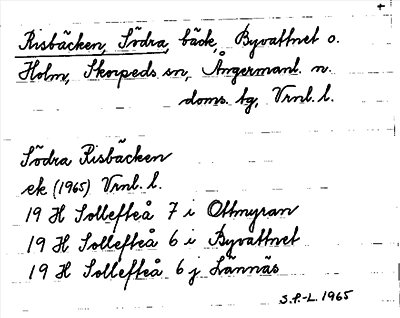 Risbäcken, Södra, bäck, Byvattnet o.
Holm, Skorpeds sn, Ångermanl. n.
doms. tg, Vrnl. l.
Södra Risbäcken
ek (1965) Vrnl. l.
19 H Sollefteå 7 i Ottmyran
19 H Sollefteå 6 i Byvattnet
19 H Sollefteå 6 j Lännäs
S.P.-L. 1965